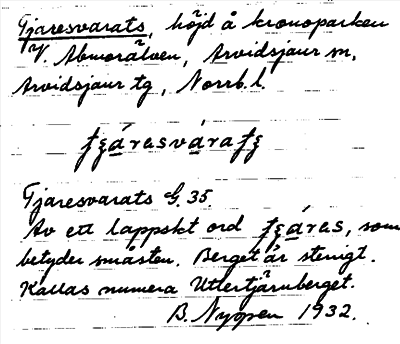 Tjaresvarats, höjd å kronoparken
V. Abmorälven, Arvidsjaur sn,
Arvidsjaur tg, Norrb. l.
Tjaresvarats G. 35.
Av ett lappskt ord som
betyder småsten. Berget är stenigt.
Kallas numera Utlertjärnberget.
B. Nyqvist 1932.